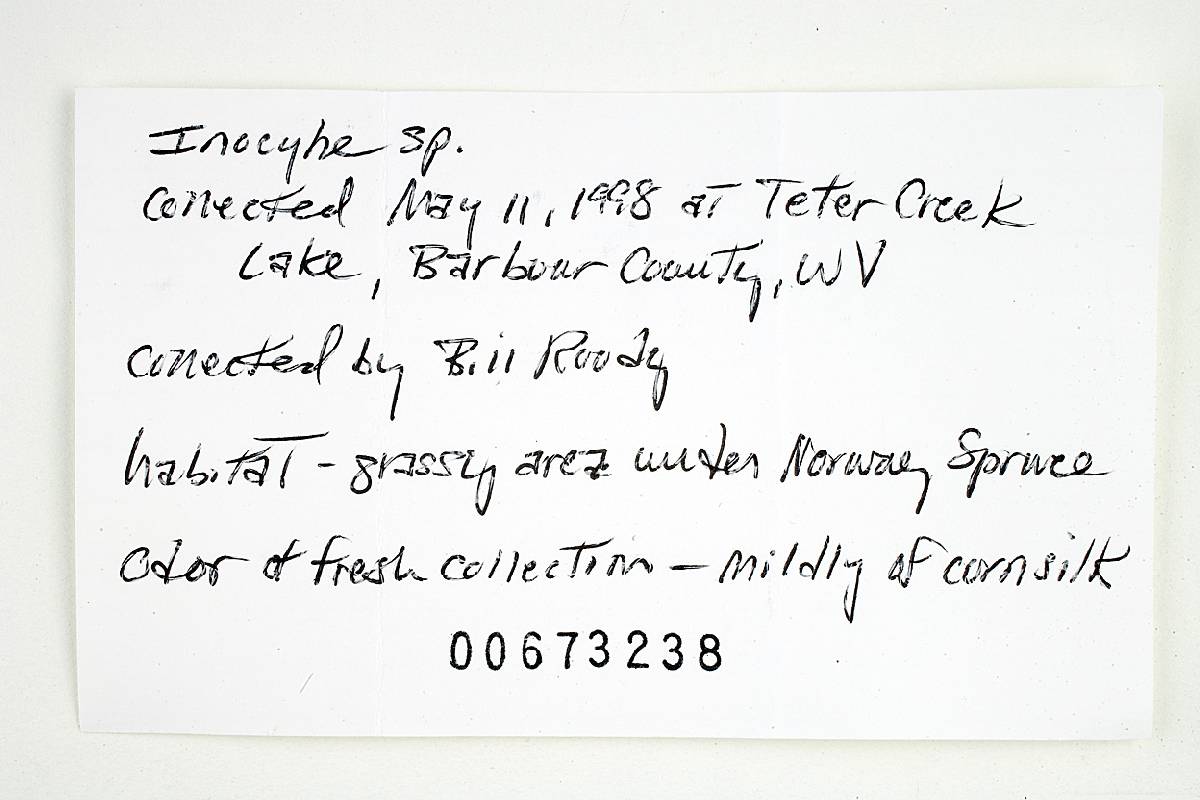 Inocybe sp.
collected May 11, 1998 at Teter Creek
Lake, Barbour County, WV
collected by Bill Roody
habitat - grassy area under Norway Spruce
Odor of fresh collection - mildly of cornsilk
00673238